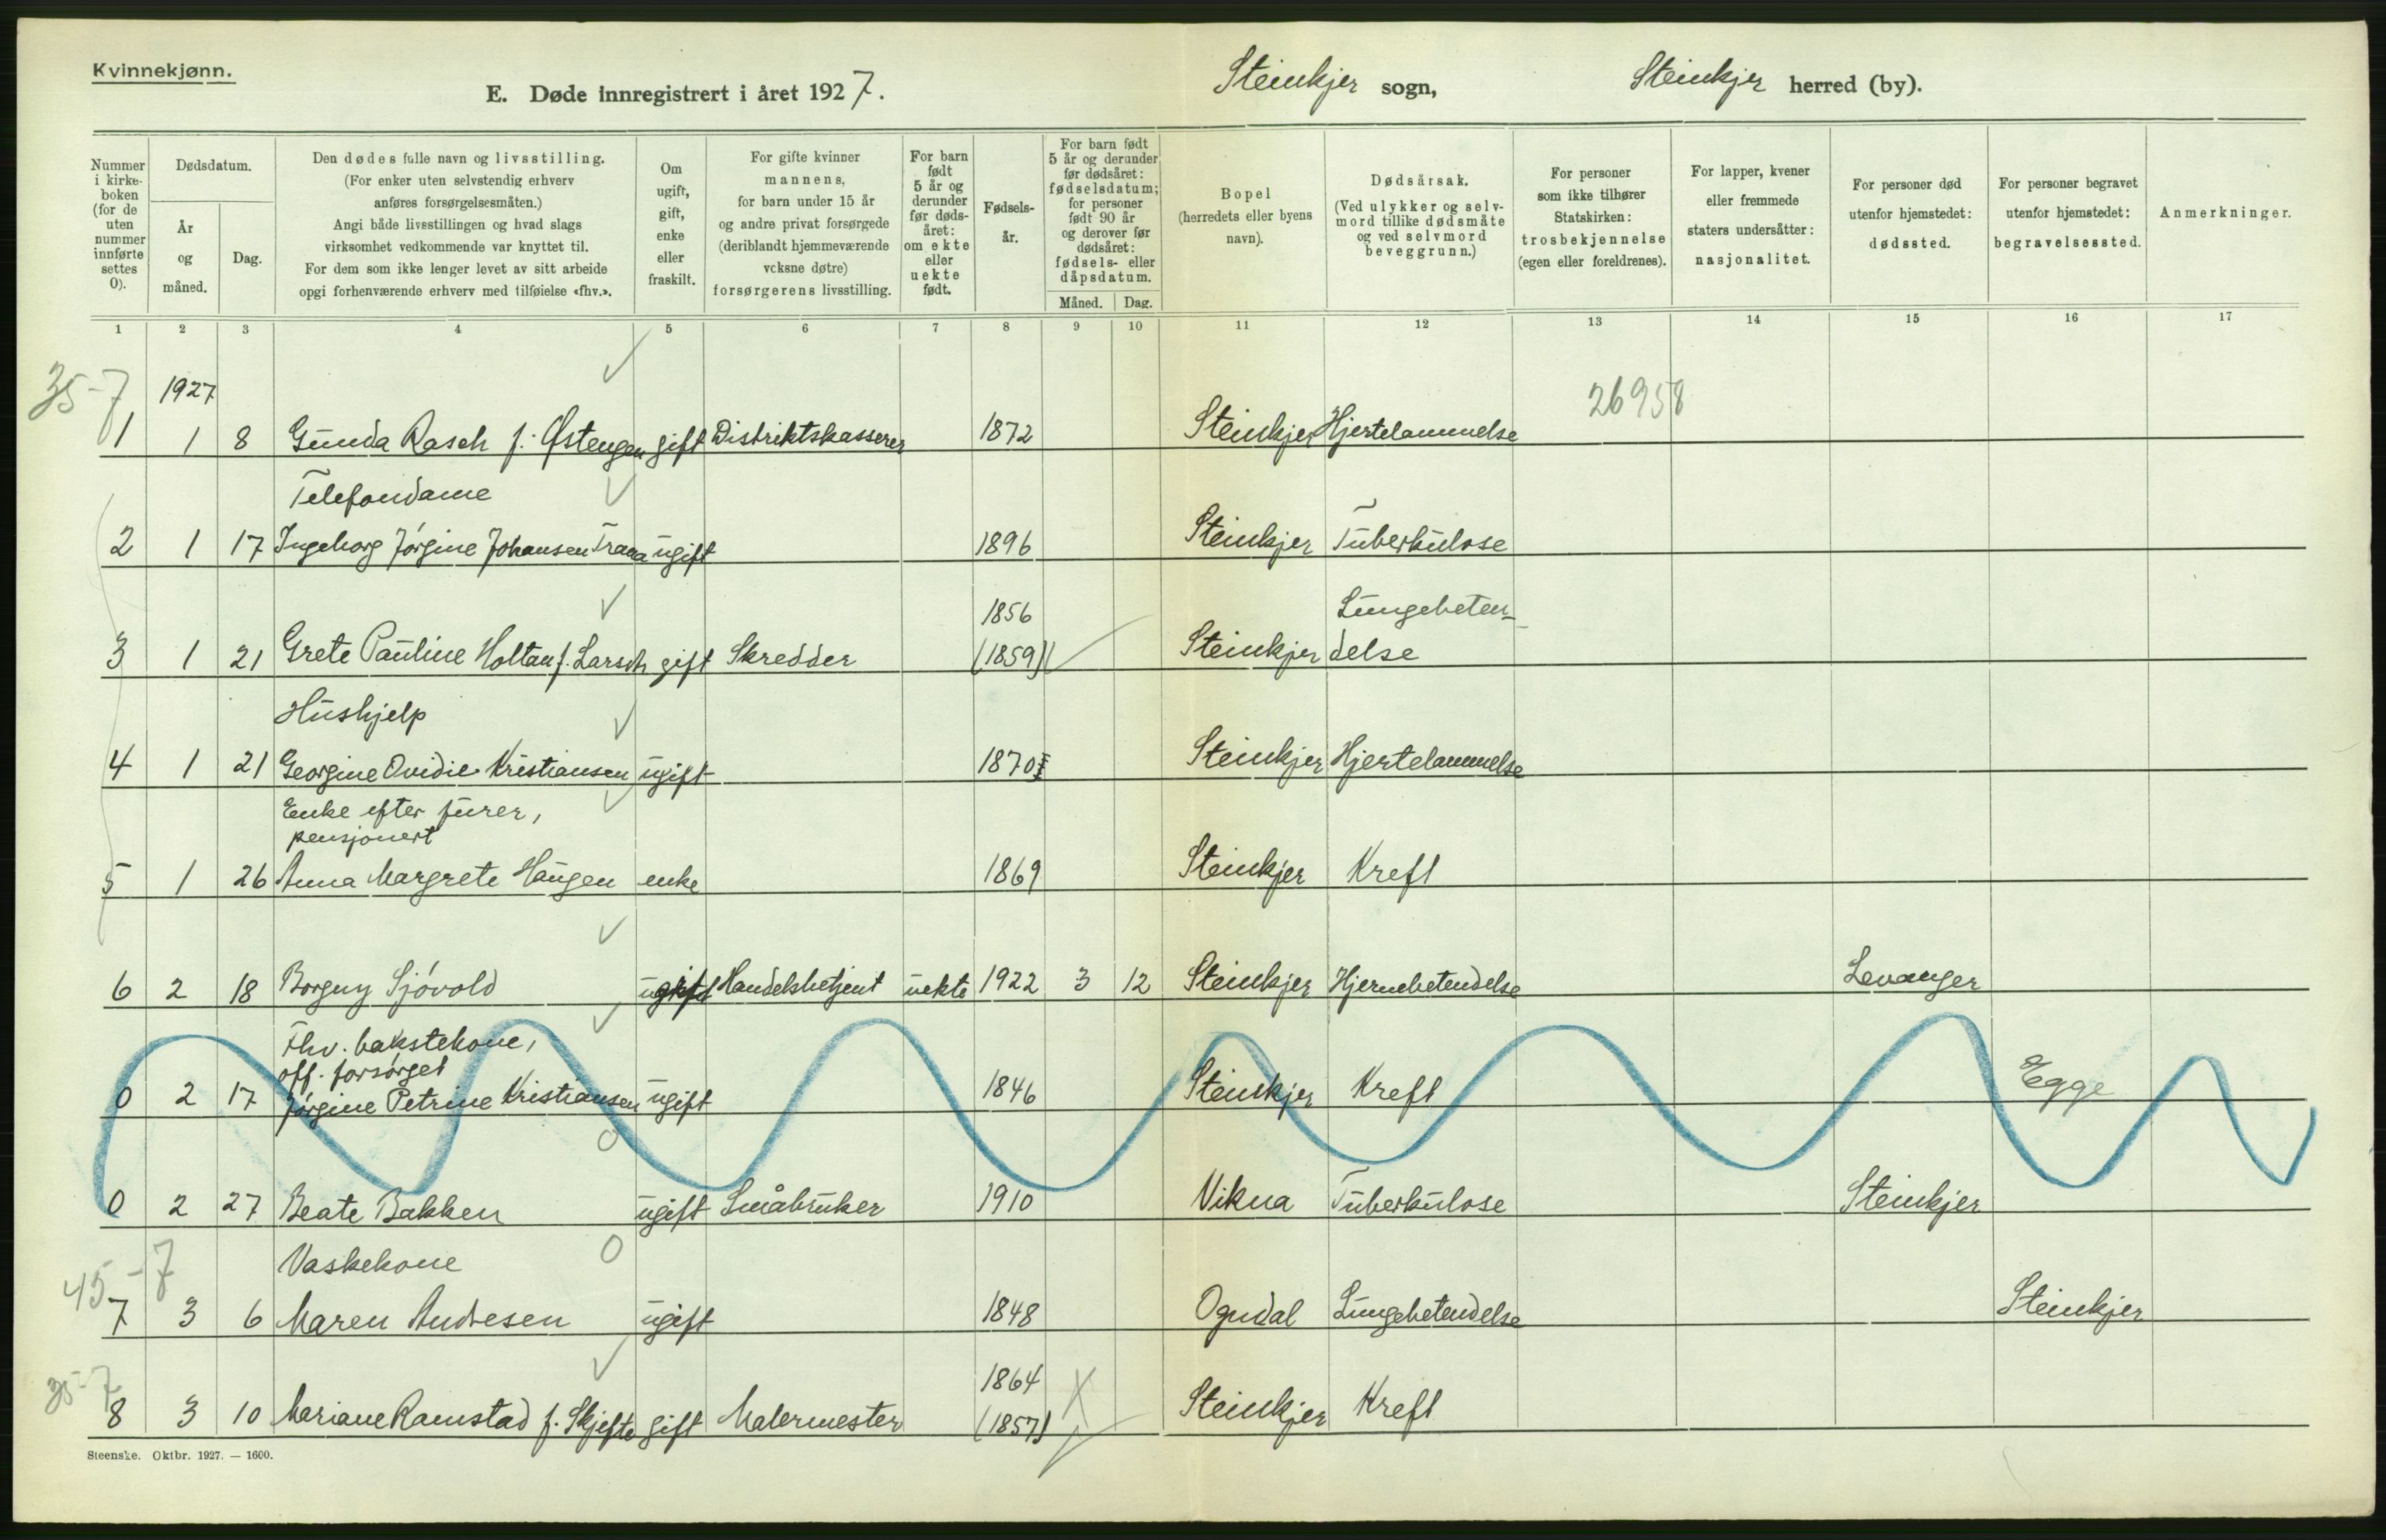 Kvinnekjønn.
E. Døde innregistrert i året 1927.
Steinkjer sogn,
Steinkjer herred (by).
Nummer i kirke-boken (for de uten nummer innførte settes 0).
Dødsdatum.
År og måned.
Dag.
Den dødes fulle navn og livsstilling.
(For enker uten selvstendig erhverv anføres forsørgelsesmåten.)
Angi både livsstillingen og hvad slags virksomhet vedkommende var knyttet til.
For dem som ikke lenger levet av sitt arbeide opgi forhenværende erhverv med tilføielse «fhv.».
Om ugift, gift, enke eller fraskilt.
For gifte kvinner mannens, for barn under 15 år og andre privat forsørgede (deriblandt hjemmeværende voksne døtre) forsørgerens livsstilling.
For barn født 5 år og derunder før døds-året: om ekte eller uekte født.
Fødsels-år.
For barn født 5 år og derunder før dødsåret: fødselsdatum; for personer født 90 år og derover før dødsåret: fødsels- eller dåpsdatum.
Måned.
Dag.
Bopel (herredets eller byens navn).
Dødsårsak.
(Ved ulykker og selv-mord tillike dødsmåte og ved selvmord beveggrunn.)
For personer som ikke tilhører Statskirken: trosbekjennelse (egen eller foreldrenes).
For lapper, kvener eller fremmede staters undersåtter: nasjonalitet.
For personer død utenfor hjemstedet: dødssted.
For personer begravet utenfor hjemstedet: begravelsessted.
Anmerkninger.
1 2 3 4 5 6 7 8 9 10 11 12 13 14 15 16 17
35-7 1927 26958
1 1 8 Gunda Rasch f. Østengen gift Distriktskasserer 1872 Steinkjer Hjertelammelse
Telefondame
2 1 17 Ingeborg Jørgine Johansen Trana ugift 1896 Steinkjer Tuberkulose
1856 Lungebeten-
3 1 21 Grete Pauline Holtan f. Larsen gift Skredder (1859) Steinkjer delse
Hushjelp
4 1 21 Georgine Ovidie Kristiansen ugift 1870 Steinkjer Hjertelammelse
Enke efter furer,
pensjonert
5 1 26 Anna Margrete Haugen enke 1869 Steinkjer Kreft
6 2 18 Borguy Sjøvold ugift Handelsbetjent uekte 1922 3 12 Steinkjer Hjernebetendelse Levanger
Fhv. bakstekone,
off. forsørget
0 2 17 Jørgine Petrine Kristiansen ugift 1846 Steinkjer Kreft Egge
0 2 27 Beate Bakken ugift Småbruker 1910 Vikna Tuberkulose Steinkjer
45-7 Vaskekone
7 3 6 Maren Andresen ugift 1848 Ogndal Lungebetendelse Steinkjer
35-7 1864
8 3 10 Mariane Ramstad f. Skjefte gift Malermester (1857) Steinkjer Kreft
Steenske. Oktbr. 1927. — 1600.